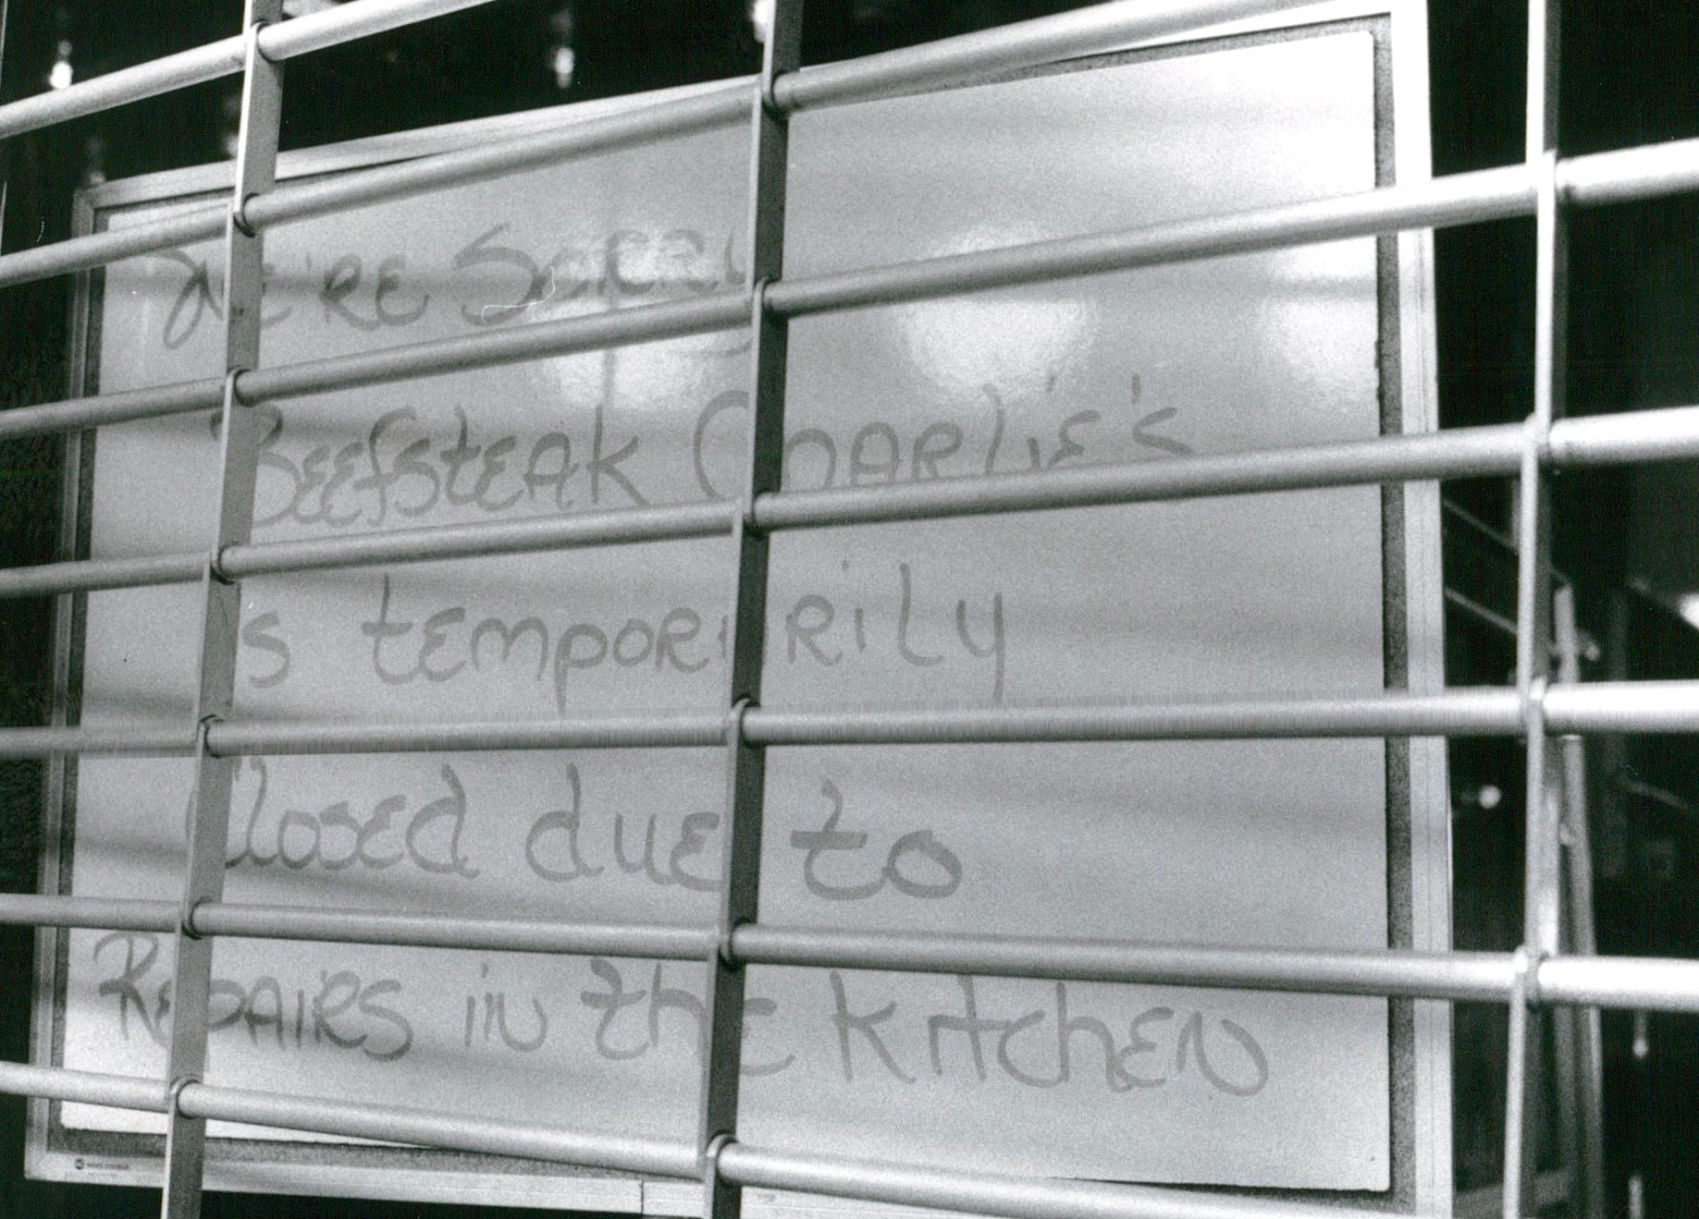 We're Sorry
Beefsteak Charlie's
is temporarily
Closed due to
Repairs in the kitchen